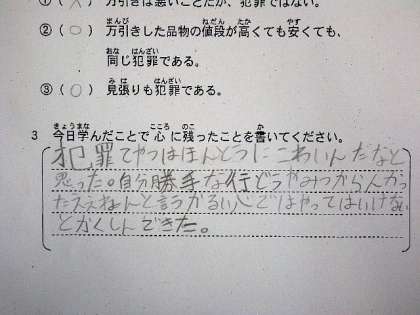 ①(×)万引きは悪いことだが、犯罪ではない。
②(○)万引きした品物の値段が高くても安くても、
同じ犯罪である。
③(○)見張りも犯罪である。
3 今日学んだことで心に残ったことを書いてください。
犯罪てやつはほんとうにこわいんだなと
思った。自分勝手な行どうやみつからんかっ
たらええねんと言うかるい心ではやってはいけない
とかくしんできた。